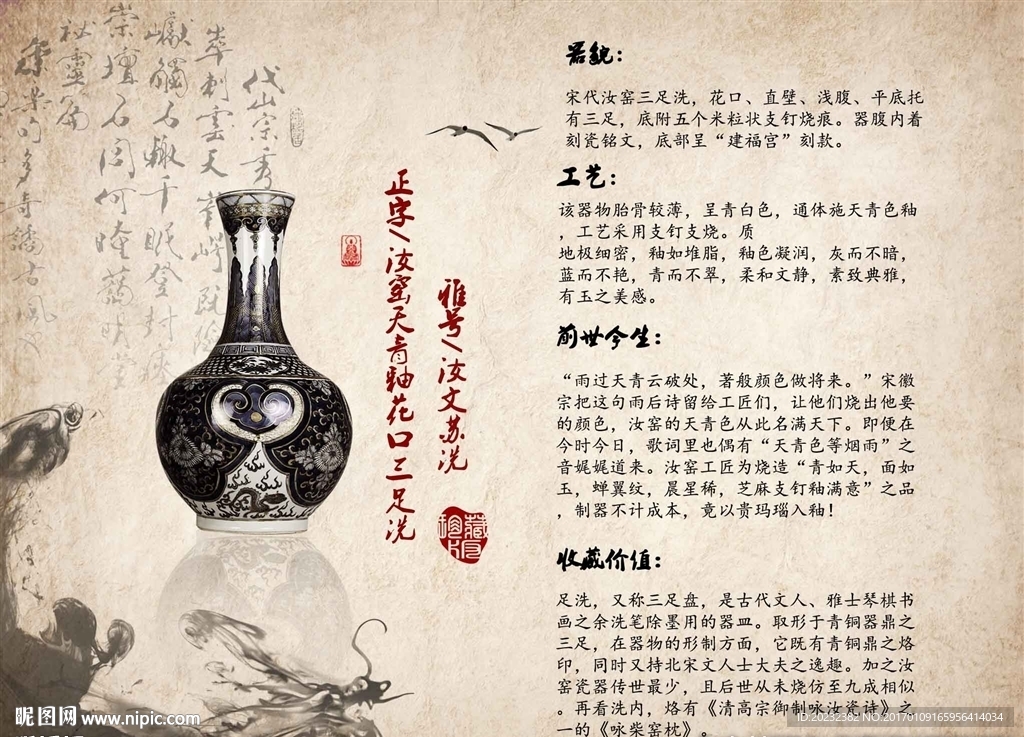 器貌：
宋代汝窑三足洗，花口、直壁、浅腹、平底托
有三足，底附五个米粒状支钉烧痕。器腹内着
刻瓷铭文，底部呈“建福宫”刻款。
工艺：
该器物胎骨较薄，呈青白色，通体施天青色釉
，工艺采用支钉支烧。质
地极细密，釉如堆脂，釉色凝润，灰而不暗，
蓝而不艳，青而不翠，柔和文静，素致典雅，
有玉之美感。
前世今生：
“雨过天青云破处，著般颜色做将来。”宋徽
宗把这句雨后诗留给工匠们，让他们烧出他要
的颜色，汝窑的天青色从此名满天下。即便在
今时今日，歌词里也偶有“天青色等烟雨”之
音娓娓道来。汝窑工匠为烧造“青如天，面如
玉，蝉翼纹，晨星稀，芝麻支钉釉满意”之品
，制器不计成本，竟以贵玛瑙入釉！
收藏价值：
足洗，又称三足盘，是古代文人、雅士琴棋书
画之余洗笔除墨用的器皿。取形于青铜器鼎之
三足，在器物的形制方面，它既有青铜鼎之烙
印，同时又持北宋文人士大夫之逸趣。加之汝
窑瓷器传世最少，且后世从未烧仿至九成相似
。再看洗内，烙有《清高宗御制咏汝瓷诗》之
一的《咏柴窑枕》。
雅号/汝文苏洗
正字/汝窑天青釉花口三足洗
昵图网 www.nipic.com
ID:20232382 NO.20170109165956414034